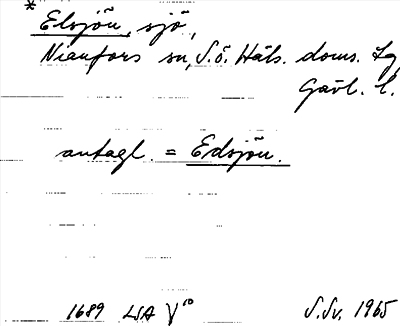 *
Elsjön, sjö,
Nianfors sn, S.ö. Häls. doms. tg
Gävl. l.
antagl. = Edsjön.
1689 LSA V¹⁰ S.Sv. 1965